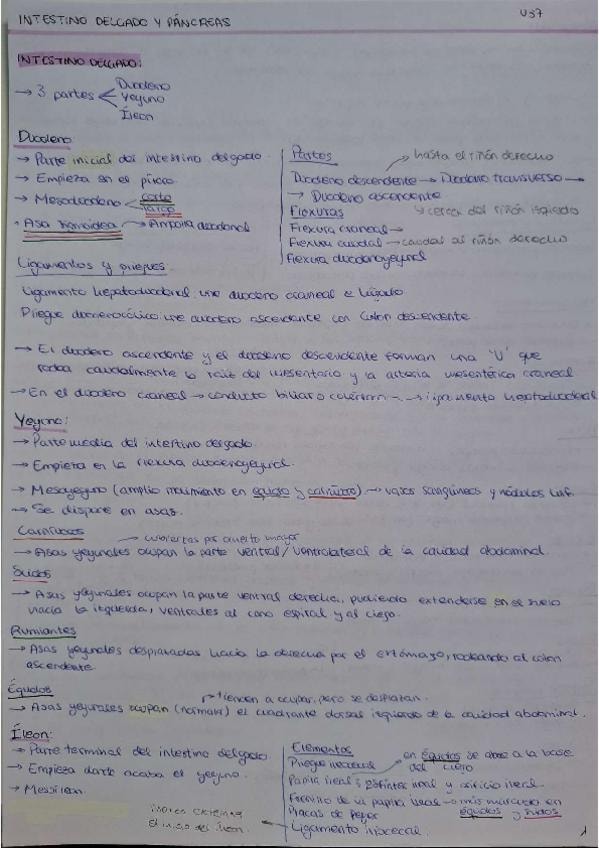 INTESTINO DELGADO Y PÁNCREAS
U37
INTESTINO DELGADO:
→ 3 partes
Duodeno
Yeyuno
Íleon
Duodeno
→ Parte inicial del intestino delgado.
→ Empieza en el píloro
→ Mesoduodeno
corto
largo
Asa sigmoidea → Ampolla duodenal
Partes
hasta el riñón derecho
Duodeno descendente → Duodeno transverso →
→ Duodeno ascendente
cerca del riñón izquierdo
Flexuras
Flexura craneal →
Flexura caudal → caudal al riñón derecho
Flexura duodenoyeyunal
Ligamentos y pliegues:
Ligamento hepatoduodenal: une duodeno craneal e hígado
Pliegue duodenocólico: une duodeno ascendente con colon descendente
→ El duodeno ascendente y el duodeno descendente forman una "U" que
rodea caudalmente la raíz del mesenterio y la arteria mesentérica craneal
→ En el duodeno craneal → conducto biliar o → ligamento hepatoduodenal
Yeyuno:
→ Parte media del intestino delgado.
→ Empieza en la flexura duodenoyeyunal.
→ Mesoyeyuno (amplio movimiento en équido y carnívoro) → vasos sanguíneos y nódulos linf.
→ Se dispone en asas.
Carnívoros
cubiertas por omento mayor
→ Asas yeyunales ocupan la parte ventral/ventrolateral de la cavidad abdominal.
Suidos
→ Asas yeyunales ocupan la parte ventral derecha, pudiendo extenderse en el suelo
hacia la izquierda, ventrales al cono espiral y al ciego.
Rumiantes
→ Asas yeyunales desplazadas hacia la derecha por el estómago, rodeando al colon
ascendente.
Équidos
→ tienden a ocupar, pero se desplazan.
→ Asas yeyunales ocupan (normal) el cuadrante dorsal izquierdo de la cavidad abdominal.
Íleon:
→ Parte terminal del intestino delgado.
→ Empieza donde acaba el yeyuno.
→ Mesoíleon.
Elementos
Pliegue ileocecal
en équidos se abre a la base
del ciego
Papila ileal: esfínter ileal y orificio ileal.
Frenillo de la papila ileal → más marcado en
équidos y suidos
Placas de Peyer
Ligamento ileocecal.
el inicio del íleon.
1